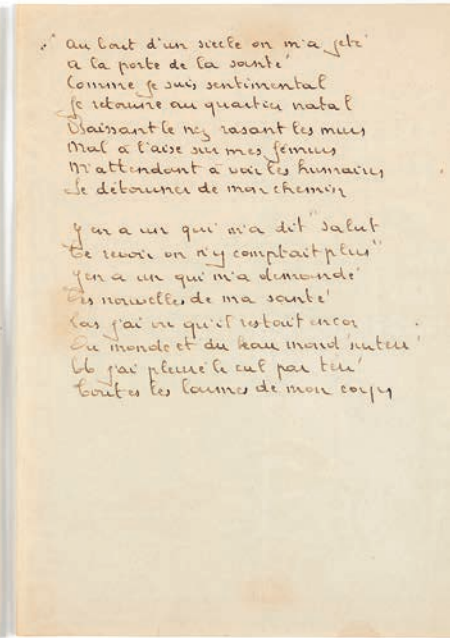 Au bout d'un siecle on m'a jeté
a la porte de la santé
Comme je suis sentimental
Je retourne au quartier natal
Baissant le nez rasant les murs
Mal a l'aise sur mes fémurs
M'attendant à voir les humains
Se détourner de mon chemin
Y en a un qui m'a dit "salut
Te revoir on n'y comptait plus"
Y en a un qui m'a demandé
Des nouvelles de ma santé
Las j'ai vu qu'il restait encor
Du monde et du beau mond' sur terr'
Et j'ai pleuré le cul par terr'
Toutes les larmes de mon corps